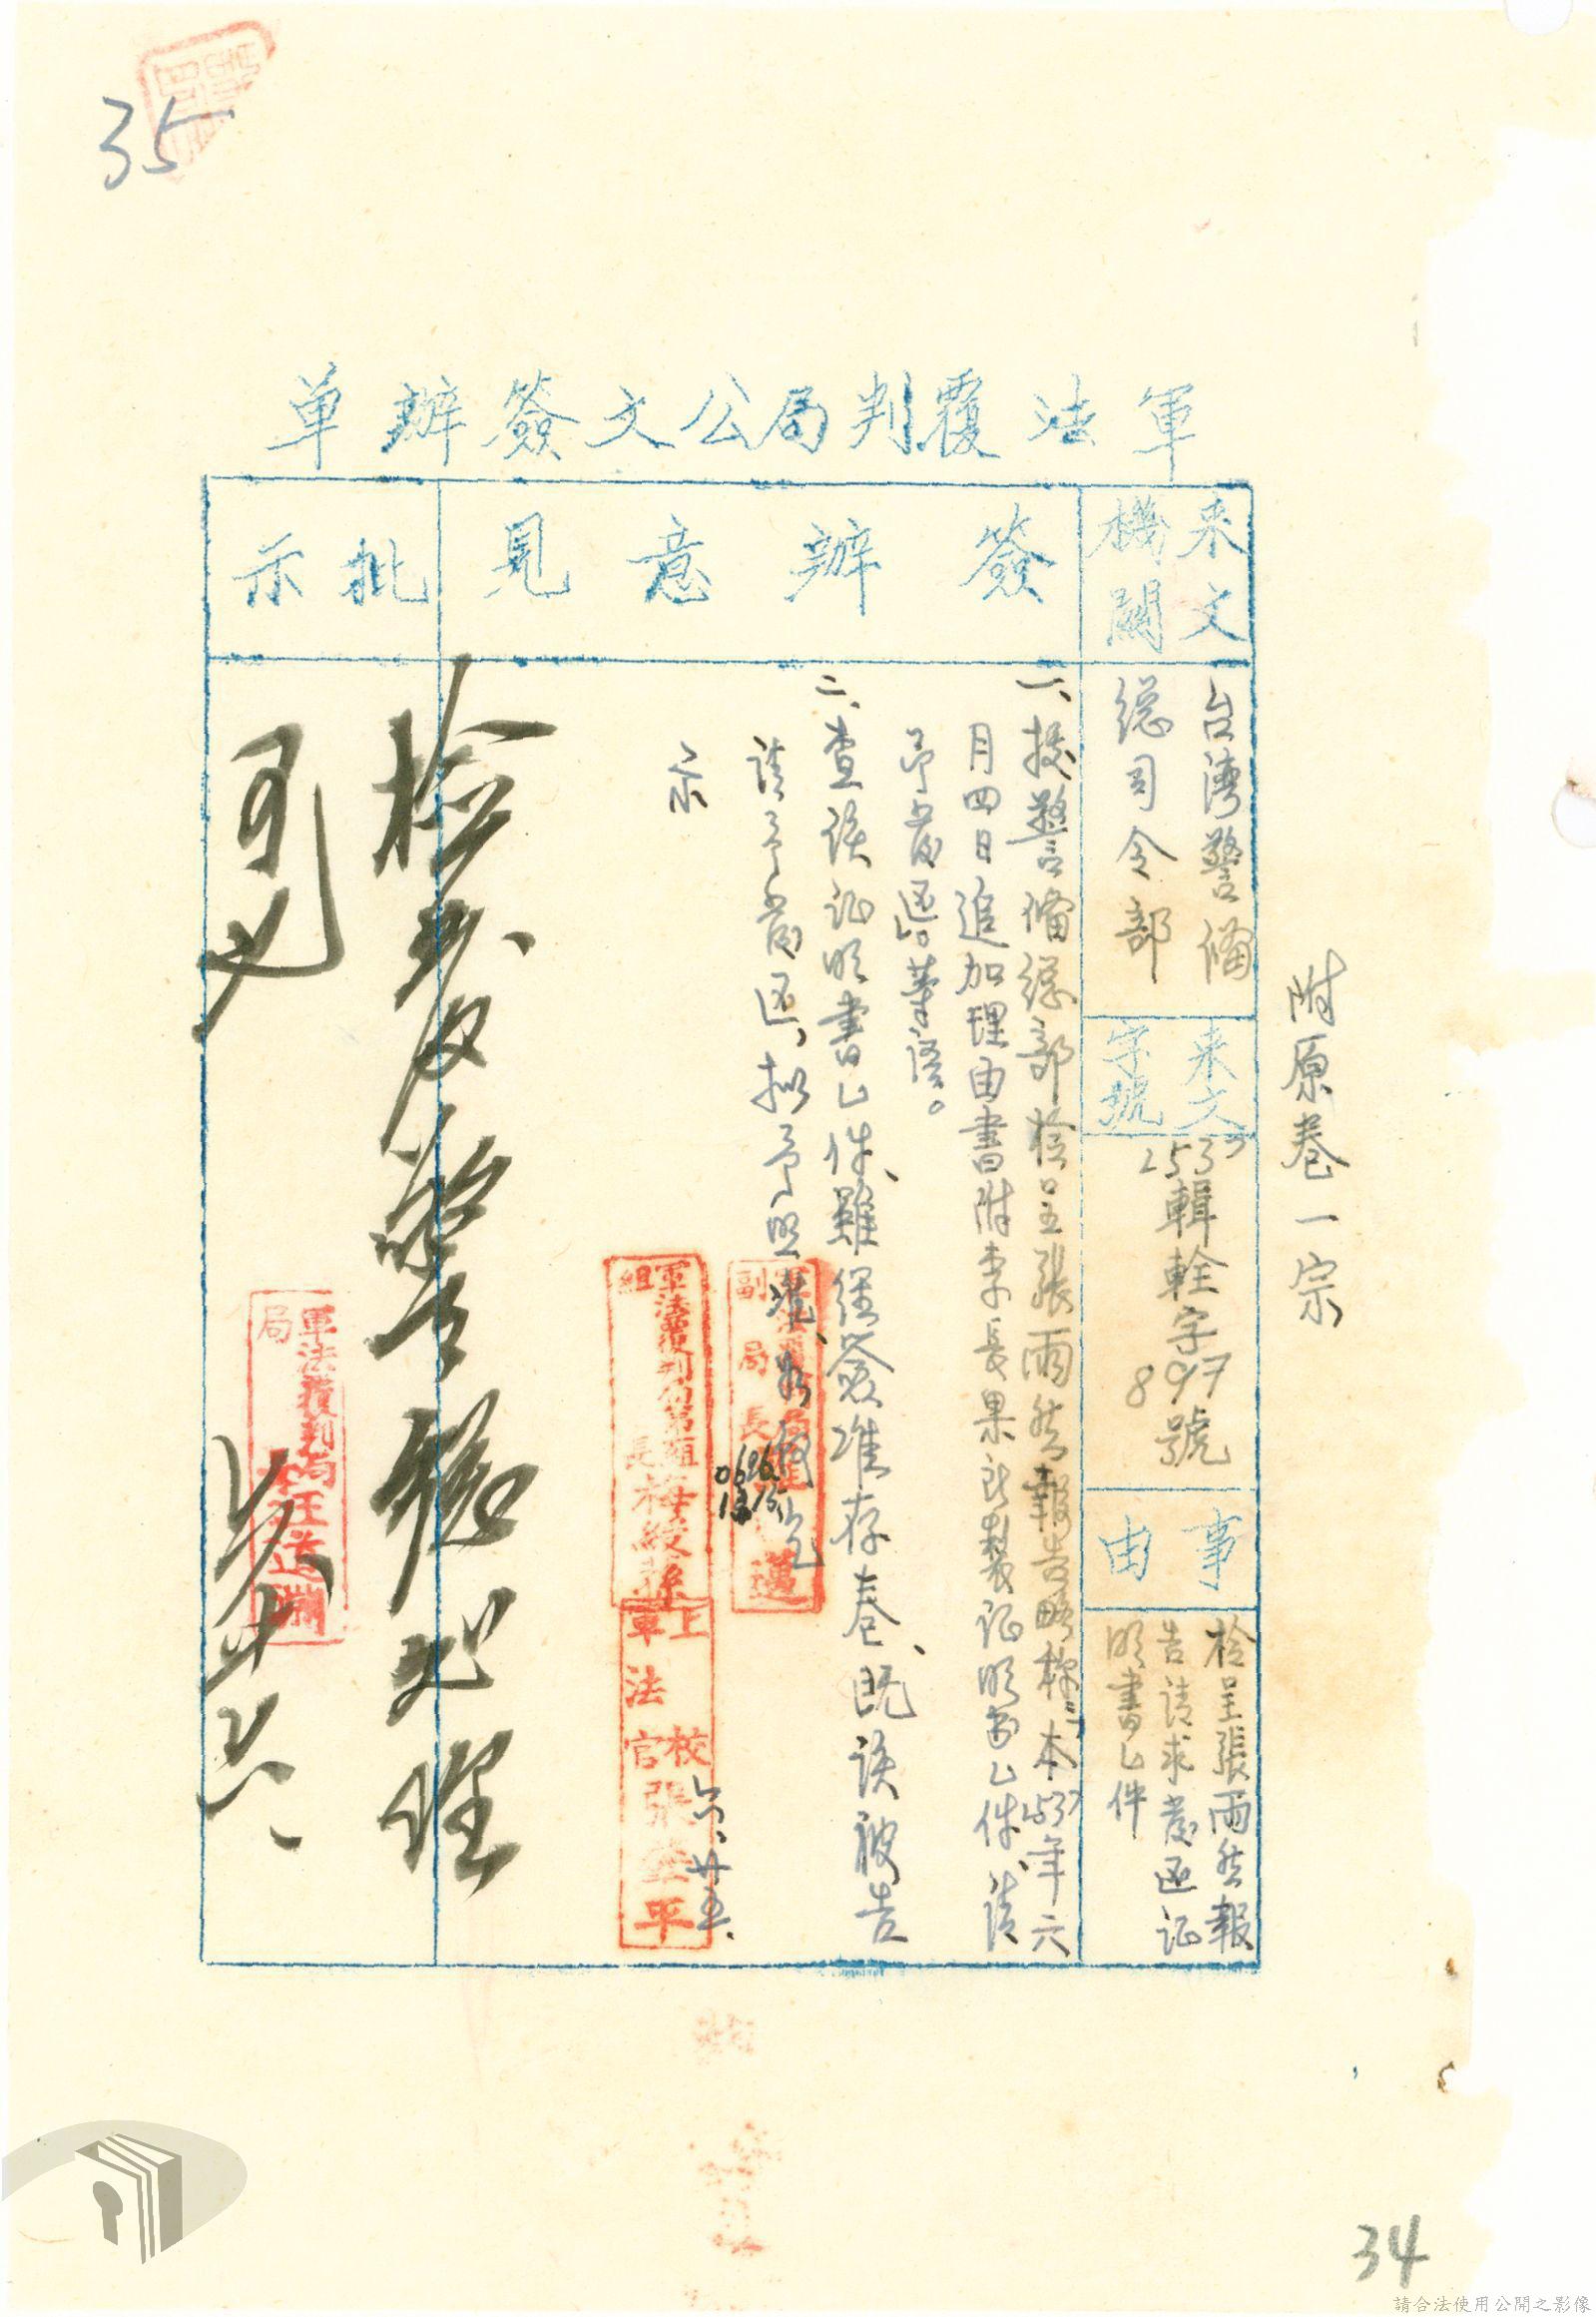 35
軍法覆判局公文簽辦單
來文機關
台灣警備
總司令部
來文字號
(53)
輯輇字
897
號
事由
檢呈張雨然報
告請求發函證
明書乙件
附原卷一宗
簽辦意見
一、據警備總部檢呈張雨然報告略稱:「本(53)年六
月四日追加理由書附李長果所製證明書乙件、請
予發函」等語。
二、查該證明書乙件、雖經簽准存卷、既該被告
請予發函、擬予照准、
示
六、廿五、
副局長
0626
軍法覆判局第組
組長梅綬蓀
上校
軍法官
張 平
批示
檢發警總處理
可也
軍法覆判局
局
34
請合法使用公開之影像